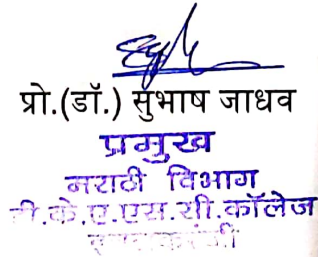 प्रो.(डॉ.) सुभाष जाधव
प्रमुख
मराठी विभाग
के.ए.एस.सी.कॉलेज